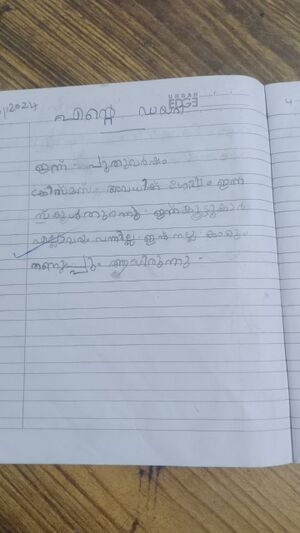 1/2024
URBAN EDGE
എന്റെ ഡയറി
ഇന്ന് പുതുവർഷം
ക്രിസ്മസ് അവധിക് ശേഷം ഇന്ന്
സ്കൂൾ തുറന്നു ഇന്ന് കൂട്ടുകാർ
എല്ലാവരും വന്നില്ല ഇന്ന് നല്ല കാറ്റും
തണുപ്പും ആയിരുന്നു.